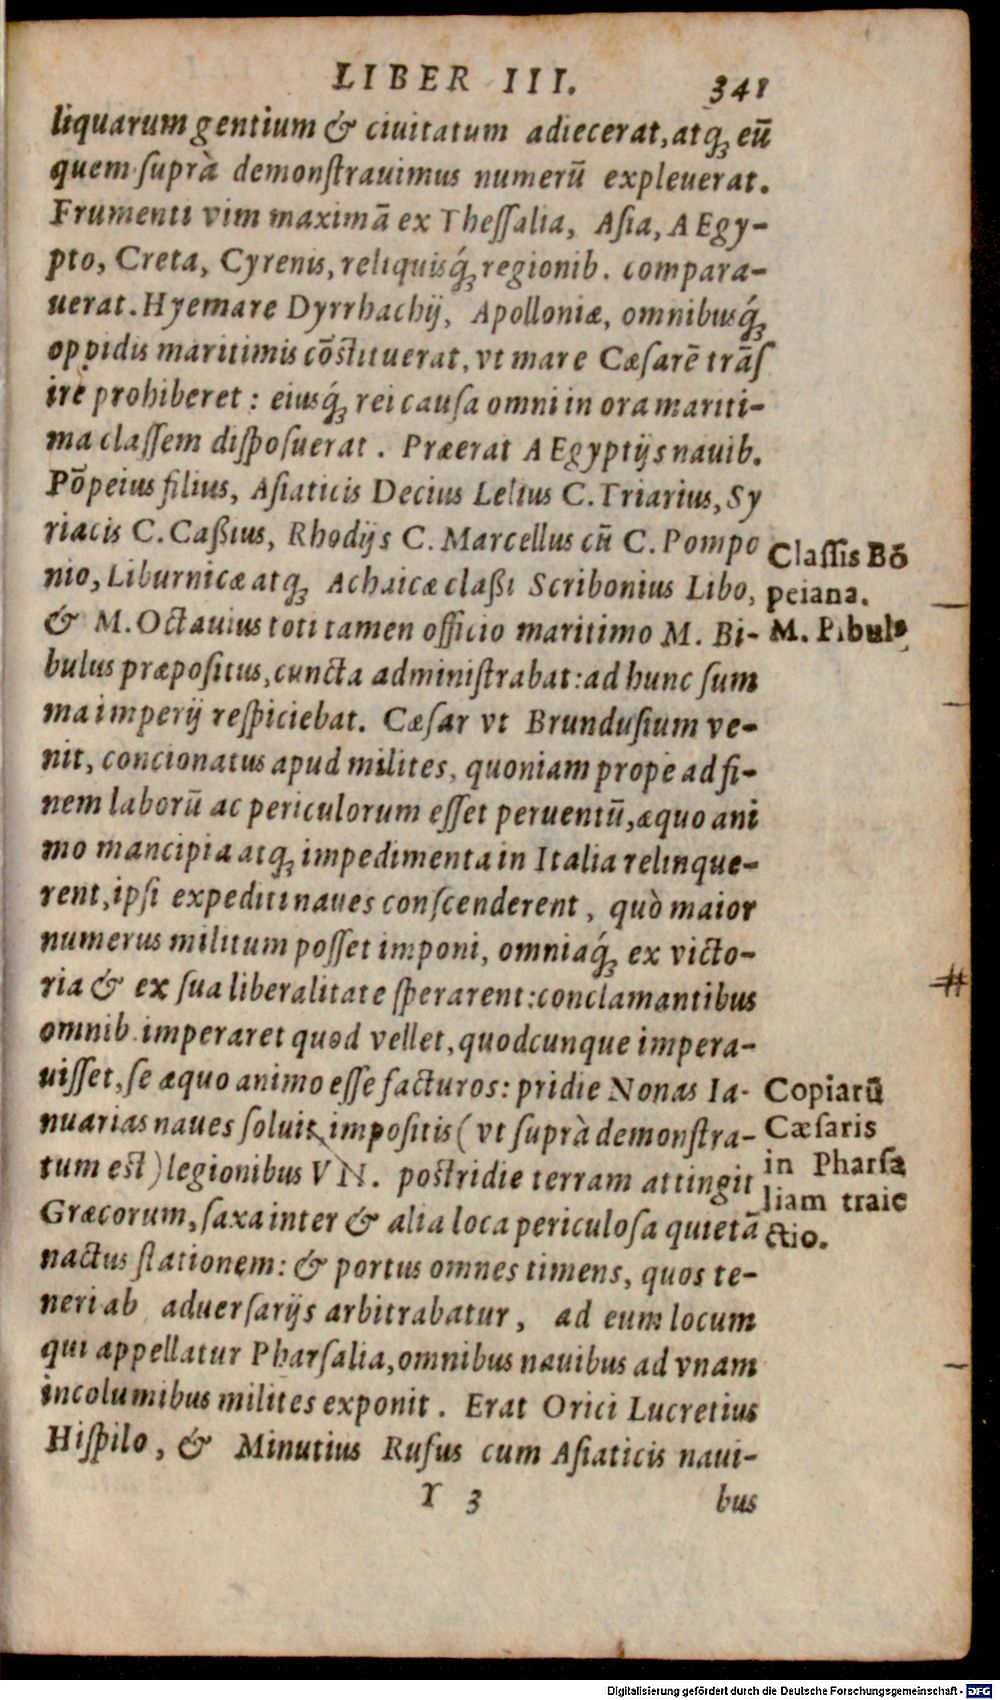 LIBER III. 341
liquarum gentium & ciuitatum adiecerat, atq́; eũ
quem suprà demonſtrauimus numerũ expleuerat.
Frumenti vim maximã ex Theſſalia, Aſia, AEgy-
pto, Creta, Cyrenis, reliquisq́; regionib. compara-
uerat. Hyemare Dyrrhachij, Apolloniæ, omnibusq́;
oppidis maritimis cõſtituerat, vt mare Cæſarẽ trãſ
ire prohiberet: eiusq́; rei cauſa omni in ora mariti-
ma claſſem diſpoſuerat. Præerat AEgyptijs nauib.
Põpeius filius, Aſiaticis Decius Lelius C. Triarius, Sy
riacis C. Caßius, Rhodijs C. Marcellus cũ C. Pompo
nio, Liburnicæ atq; Achaicæ claßi Scribonius Libo,
& M. Octauius toti tamen officio maritimo M. Bi-
bulus præpoſitus, cuncta adminiſtrabat: ad hunc ſum
ma imperij reſpiciebat. Cæſar vt Brunduſium ve-
nit, concionatus apud milites, quoniam propè ad fi-
nem laborũ ac periculorum eſſet peruentũ, æquo ani
mo mancipia atq; impedimenta in Italia relinque-
rent, ipſi expediti naues conſcenderent, quò maior
numerus militum poſſet imponi, omniaq́; ex victo-
ria & ex ſua liberalitate ſperarent: conclamantibus
omnib. imperaret quod vellet, quodcunque impera-
uiſſet, ſe æquo animo eſſe facturos: pridie Nonas Ia-
nuarias naues ſoluit, impoſitis (vt ſuprà demonſtra-
tum eſt) legionibus VII. poſtridie terram attingit
Græcorum, ſaxa inter & alia loca periculoſa quietã
nactus ſtationem: & portus omnes timens, quos te-
neri ab aduerſarijs arbitrabatur, ad eum locum
qui appellatur Pharſalia, omnibus nauibus ad vnam
incolumibus milites exponit. Erat Orici Lucretius
Hiſpilo, & Minutius Rufus cum Aſiaticis naui-
Y 3 bus
Claſſis Bõ
peiana.
M. Bibulꝰ
Copiarũ
Cæſaris
in Pharſa
liam traie
ctio.
Digitalisierung gefördert durch die Deutsche Forschungsgemeinschaft - DFG